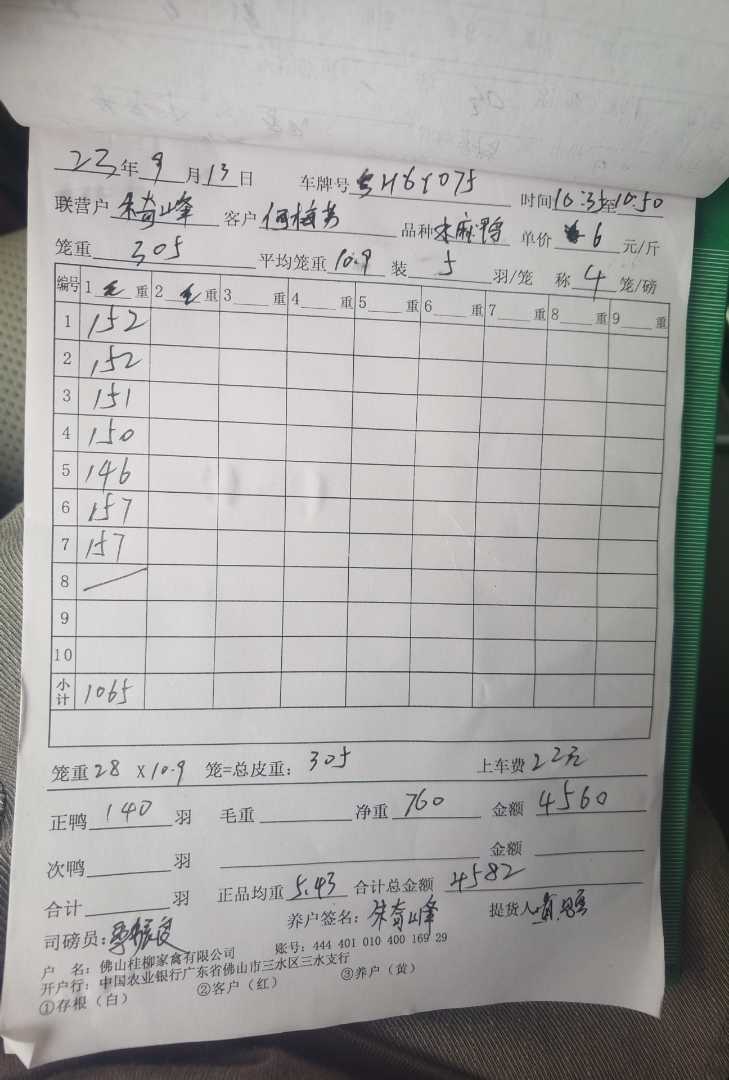 23年9月13日 车牌号 H6Y075 时间10:35至10:50
联营户 朱奇峰 客户 何梅芳 品种 水麻鸭 单价 6 元/斤
笼重 305 平均笼重 10.9 装 5 羽/笼 称 4 笼/磅
编号 1 毛 重 2 毛 重 3 重 4 重 5 重 6 重 7 重 8 重 9 重
1 152
2 152
3 151
4 150
5 146
6 157
7 157
8
9
10
小计 1065
笼重 28 X 10.9 笼=总皮重: 305 上车费 22元
正鸭 140 羽 毛重 净重 760 金额 4560
次鸭 羽 金额
合计 羽 正品均重 5.43 合计总金额 4582
司磅员: 养户签名: 朱奇峰 提货人
户 名: 佛山桂柳家禽有限公司 账号: 444 401 010 400 169 29
开户行: 中国农业银行广东省佛山市三水区三水支行
①存根(白) ②客户(红) ③养户(黄)